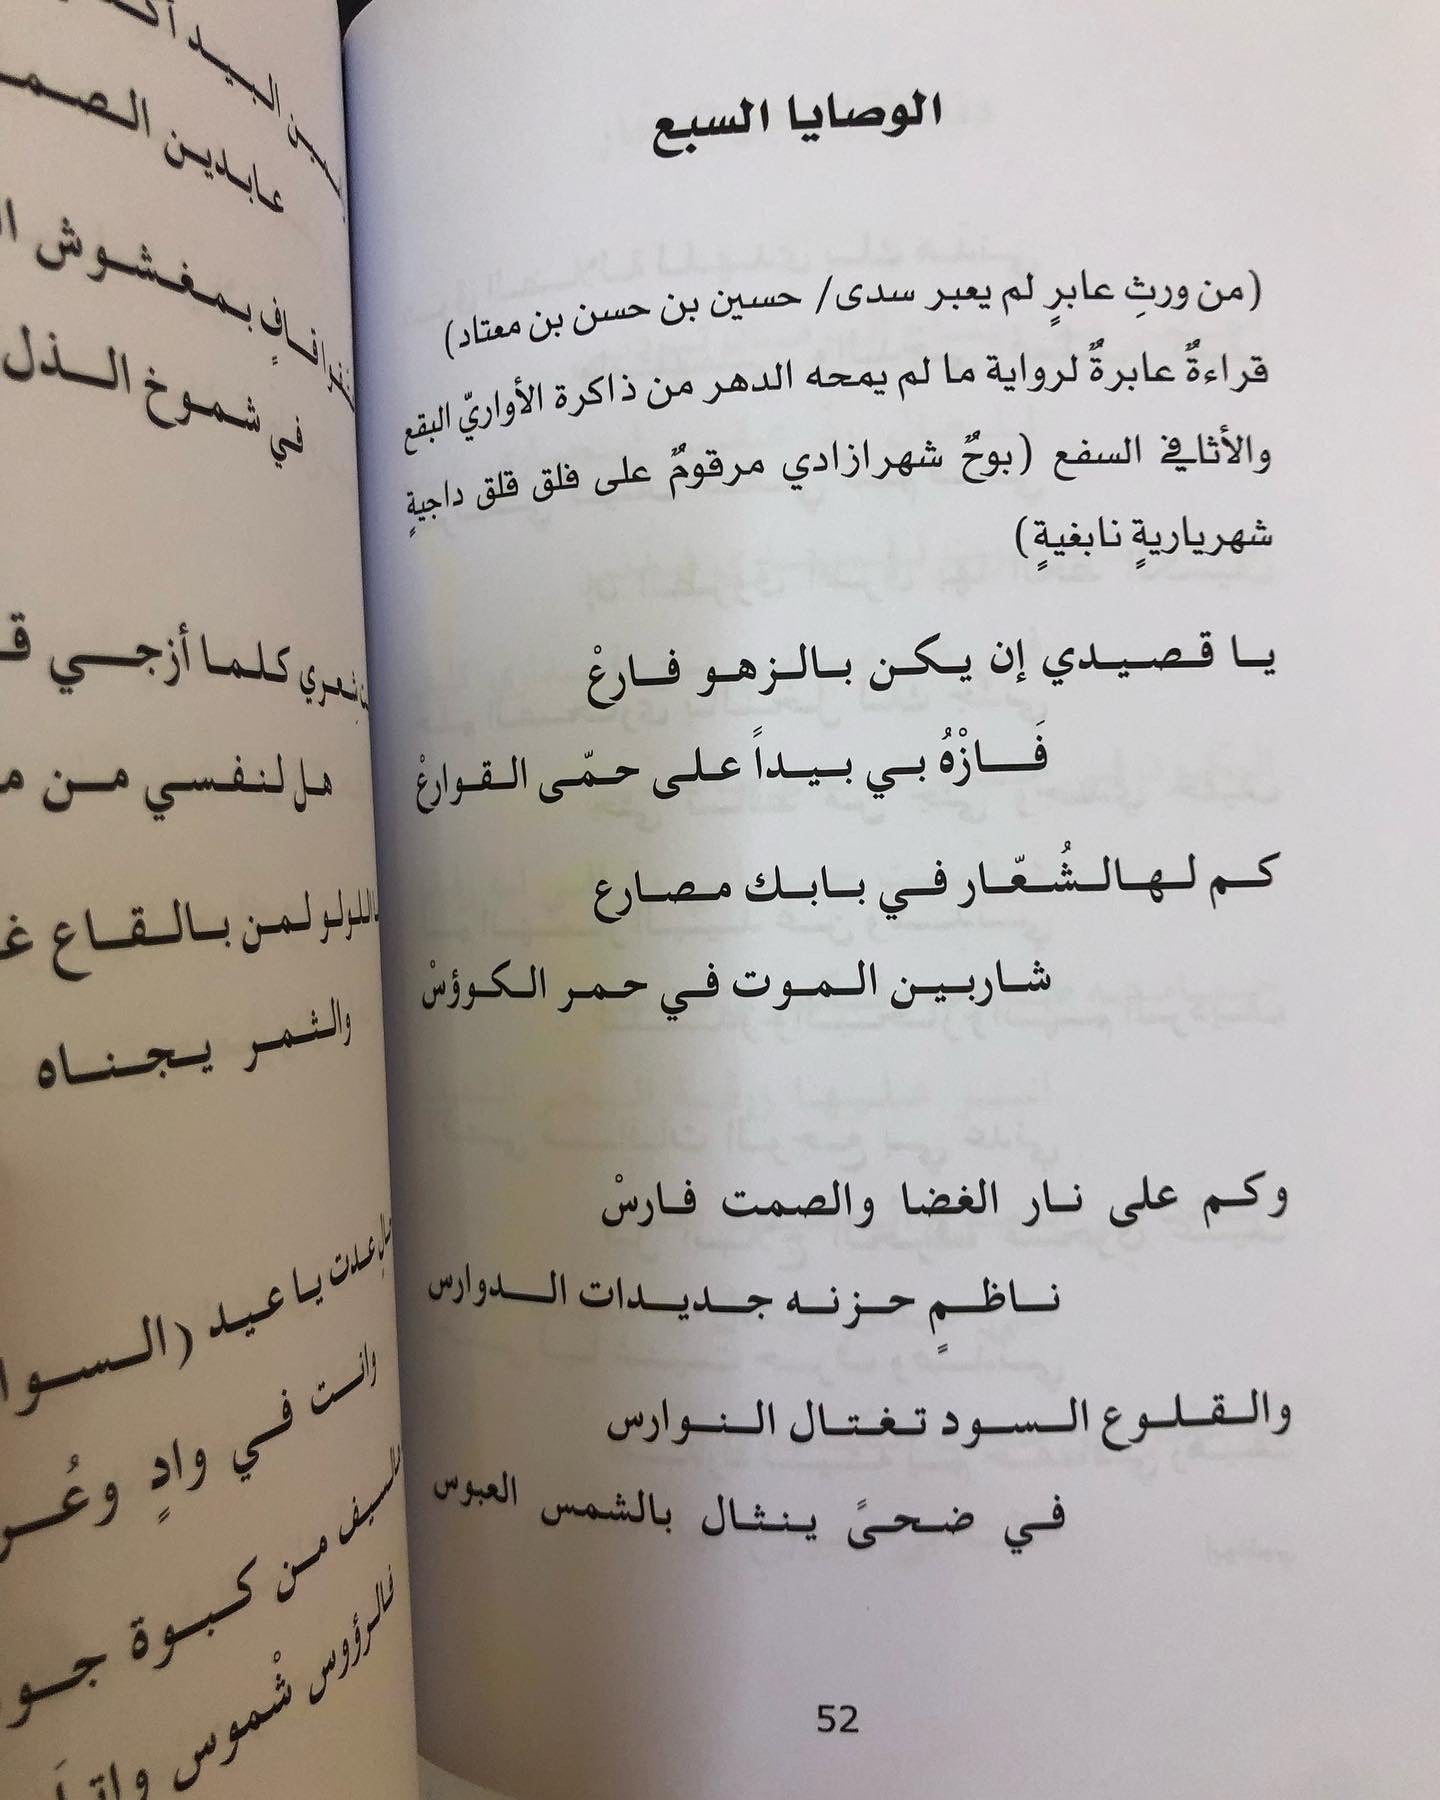 الوصايا السبع
(من ورثِ عابرٍ لم يعبر سدى/ حسين بن حسن بن معتاد)
قراءةٌ عابرةٌ لرواية ما لم يمحه الدهر من ذاكرة الأواريّ البقع
والأثافي السفع (بوحٌ شهرازادي مرقومٌ على فلق قلق داجيةٍ
شهرياريةٍ نابغيةٍ)
يا قصيدي إن يكن بالزهو فارعْ
فَازْهُ بي بيداً على حمّى القوارعْ
كم لهالشُعّار في بابك مصارع
شاربين الموت في حمر الكوؤسْ
وكم على نار الغضا والصمت فارسْ
ناظمٍ حزنه جديدات الدوارس
والقلوع السود تغتال النوارس
في ضحىً ينثال بالشمس العبوس
52
البيد
عابدين
بمغشوش
في شموخ الذل
كلما أزجي
هل لنفسي من
لمن بالقاع
والثمر يجناه
عدت يا عيد (
وانت في وادٍ
من كبوة
فالرؤوس شْموس